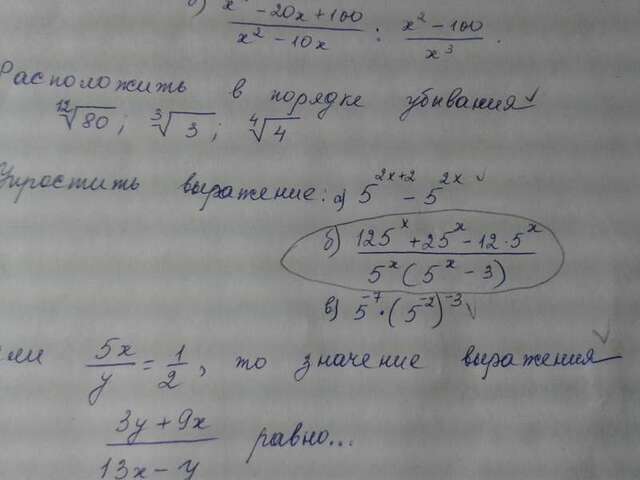 б) (x² - 20x + 100)/(x² - 10x) : (x² - 100)/x³ .
Расположить в порядке убывания
¹²√80; ³√3; ⁴√4
Упростить выражение: а) 5^(2x+2) - 5^(2x)
б) (125^x + 25^x - 12·5^x)/(5^x(5^x - 3))
в) 5^(-7)·(5^(-2))^(-3)
5x/y = 1/2, то значение выражения
(3y + 9x)/(13x - y) равно...